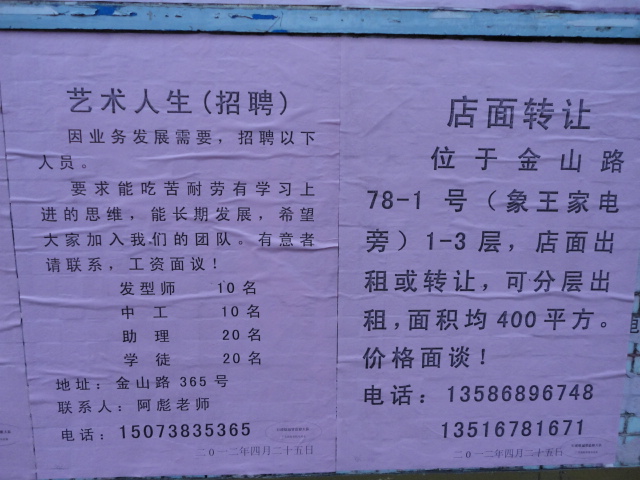 艺术人生(招聘)
因业务发展需要，招聘以下
人员。
要求能吃苦耐劳有学习上
进的思维，能长期发展，希望
大家加入我们的团队。有意者
请联系，工资面议！
发型师 10名
中工 10名
助理 20名
学徒 20名
地址：金山路365号
联系人：阿彪老师
电话：15073835365
二〇一二年四月二十五日
店面转让
位于金山路
78-1号（象王家电
旁）1-3层，店面出
租或转让，可分层出
租，面积均400平方。
价格面谈！
电话：13586896748
13516781671
二〇一二年四月二十五日